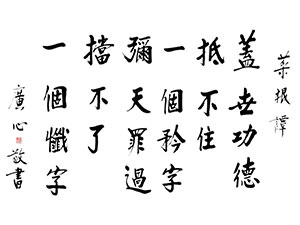 菜根譚
蓋世功德
抵不住
一個矜字
彌天罪過
擋不了
一個懺字
廣心敬書